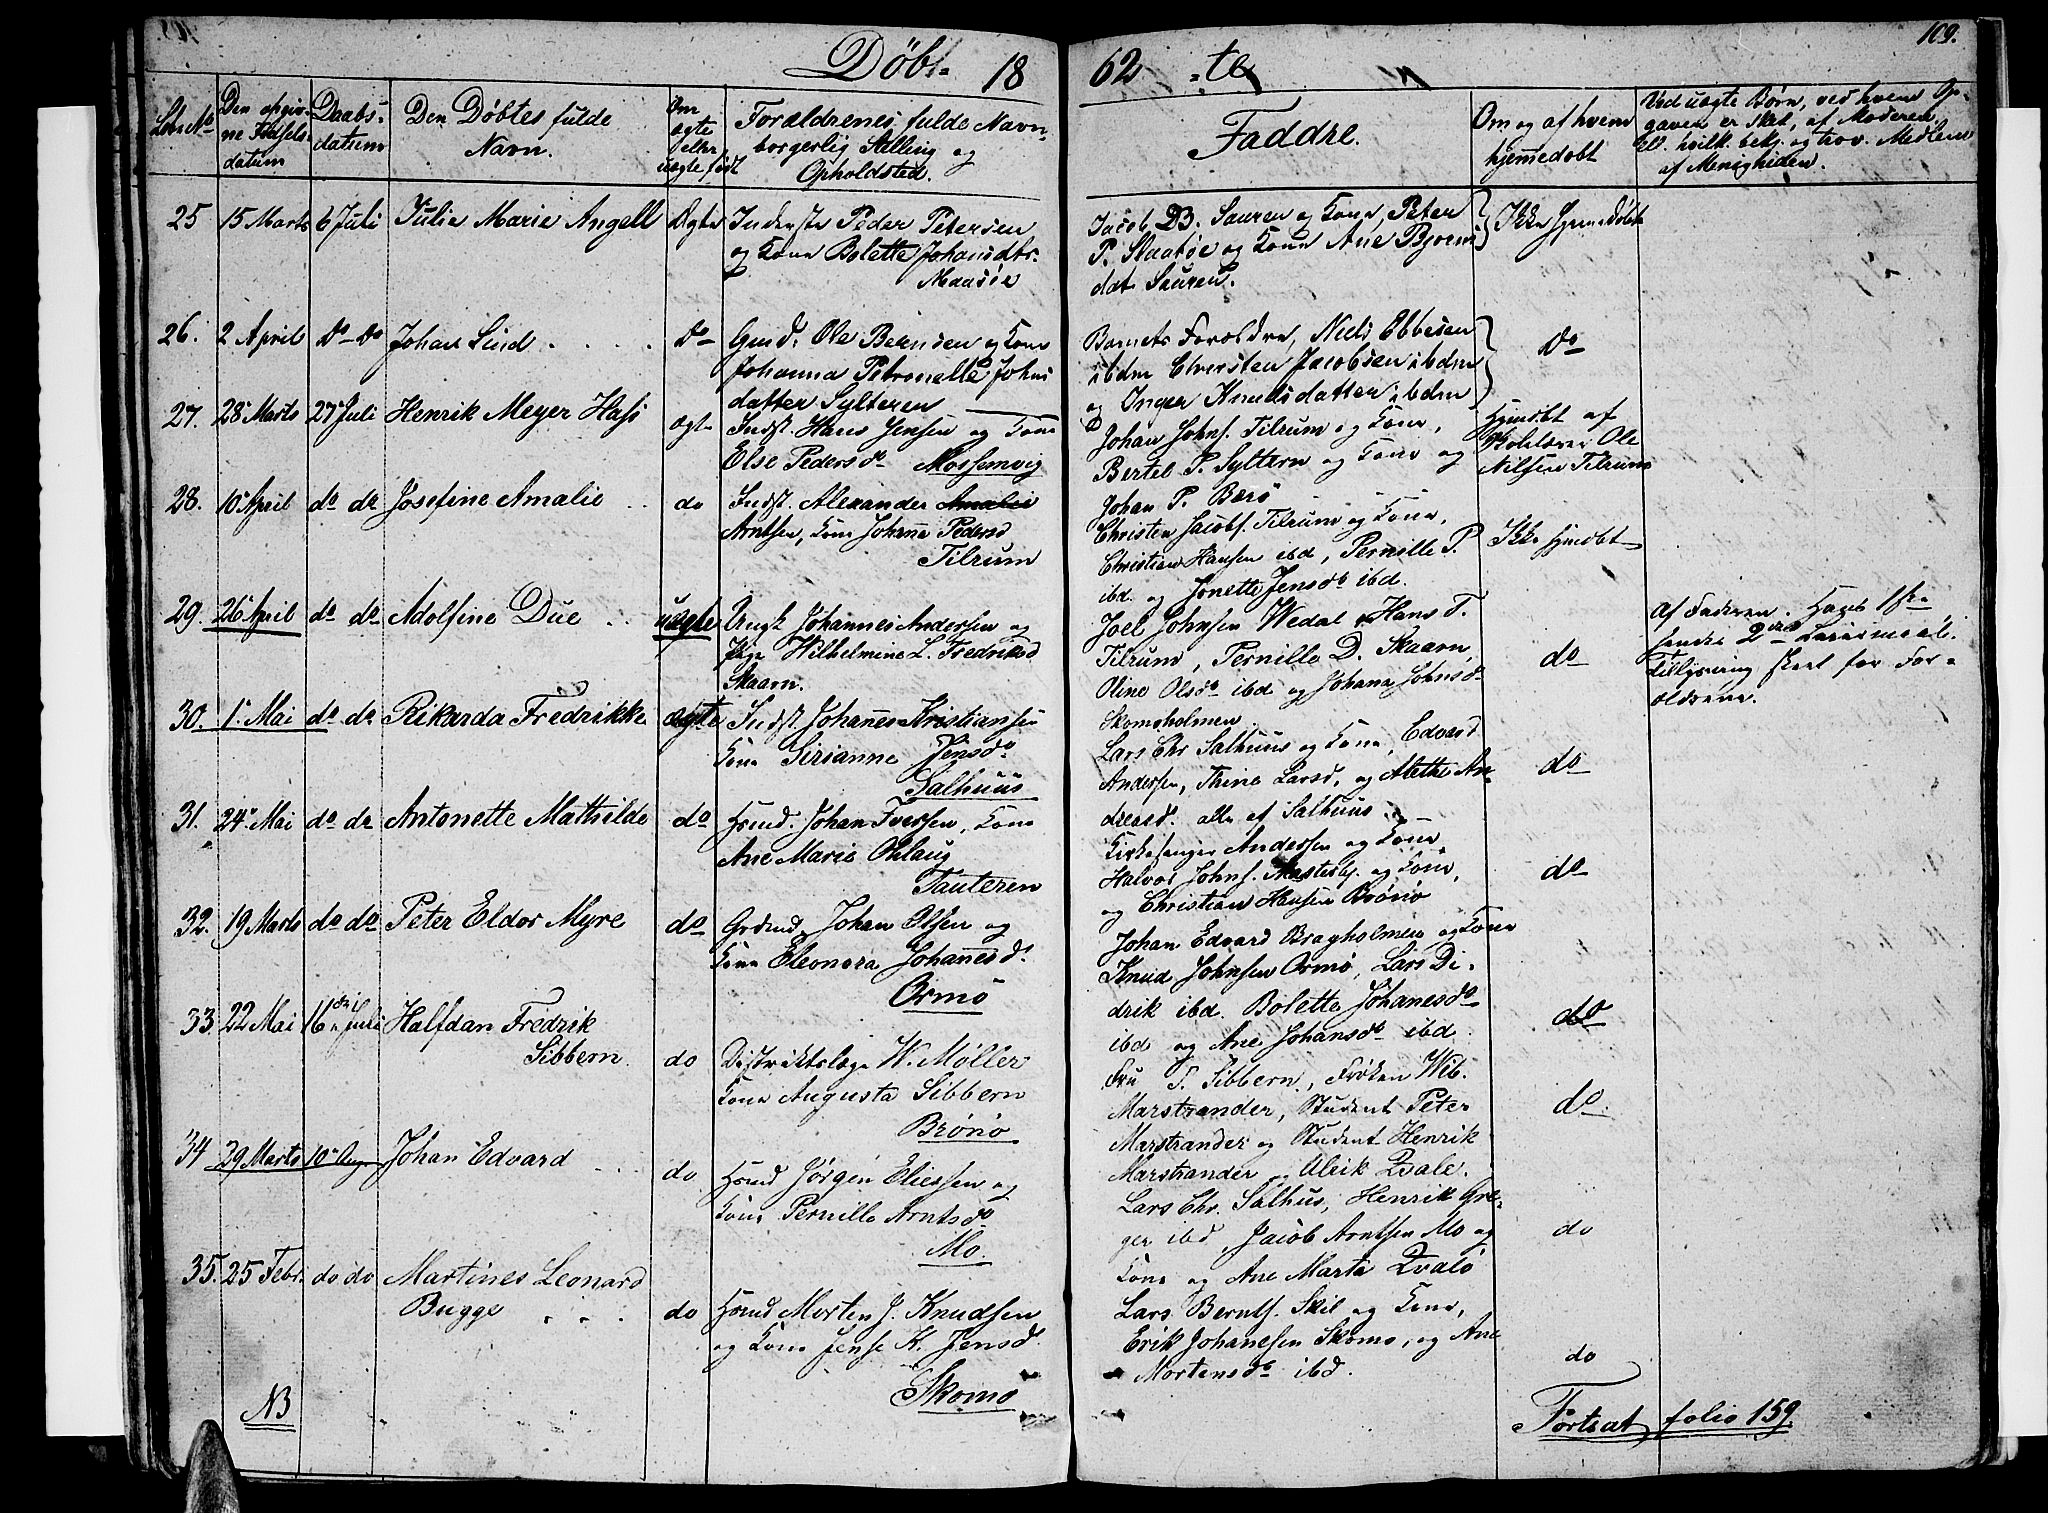 109.
Døbte 1862
Løb: No
Den opgiv-
ne Fødsels
datum
Daabs-
datum
Den Døbtes fulde
Navn.
Om
ægte
eller
uægte født
Forældrenes fulde Navn
borgerlig Stilling og
Opholdsted.
Faddre.
Om og af hvem
hjemmedøbt
Ved uægte Børn, ved hvem Op-
gaven er skeet, af Moderen
af Menigheden.
25 15 Marts 6 Juli Julia Marie Angell Ægte Inderste Peder Petersen
og Kone Bolette Johansdtr.
Maasøe
Jacob B. Sauren og Kone, Peter
P. Slaatøe og Kone Ane Bjørns
dat Sauren.
Ikke hjemmedøbt
26. 2 April do do Johan Lind do Gmd. Ole Berntsen og Kone
Johanna Petronelle Johns
datter Sylteren
Barnets Forældre, Niels Ebbesen
ibdm Elversten Jacobsen ibdm
og Inger Knudsdatter ibdm
do
27. 28 Marts 27 Juli Henrik Meyer Hass ægte Indst. Hans Jensen og Kone
Else Pedersdr Mossemvig
Johan Johns. Tilrum og Kone,
Bertel P. Syltern og Kone og
Johan P. Berø
Hjemdøbt af
Skolelærer Ole
Nilsen Tilrum
28. 10 April do do Josefine Amalie do Indst. Alexander Amalie
Arntsen, Kone Johanne Pedersd
Tilrum
Christen Jacobs. Tilrum og Kone,
Christian Hansen ibd, Pernille P.
ibd. og Jonette Jensdr ibd.
Ikke hjmdøbt
29. 26 April do do Adolfine Due uægte Ungk Johannes Andersen og
Pige Wilhelmine L. Fredriksd
Skaarn.
Joel Johnsen Wedal, Hans T.
Tilrum, Pernille D. Skaarn,
Oline Olsdr ibd og Johana Johnsdr
Skomsholmen
do
Af Faderen. Hages 1ste
Fændes 2den Leiermaal.
Tillysning skeet for For-
ældrene.
30. 1 Mai do do Rikarda Fredrikke ægte Indst Johannes Kristiansen
Kone Sirianne Jensdr
Salhuus
Lars Chr Salhuus og Kone, Edvard
Andersen, Trine Larsd, og Alethe An-
dreasd. alle af Salhuus
do
31. 24 Mai do do Antonette Mathilde do Hsmd. Johan Iversen, Kone
Ane Marie Ohlaug
Tauteren
Kirkesanger Andersen og Kone,
Halvor Johns. og Kone,
og Christian Hansen Brønø
do
32. 19 Marts do do Peter Eldor Myre do Grdmd Johan Olsen og
Kone Eleonora Johanesdr
Ormø
Johan Edvard Bragholmen og Kone
Knud Johnsen Ormø, Lars Di-
drik ibd. Bolette Johanesdr
ibd og Ane Johansdr ibd.
do
33 22 Mai 16 Juli Halfdan Fredrik
Sibbern do Distriktslæge W. Møller
Kone Augusta Sibbern
Brønø
Fru T. Sibbern, Frøken Wib.
Marstrander, Student Peter
Marstrander og Student Henrik
Marstrander og Ulrik Qvale.
do
34 29 Marts 10 Aug Johan Edvard do Hsmd Jørgen Eliessen og
Kone Pernille Arntsdr
Mo.
Lars Chr. Salhus, Henrik Gre-
ger ibd, Jacob Arntsen Mo og
Kone og Ane Marta Qvalø
do
35. 25 Febr. do do Martines Leonard
Bugge do Hsmd Morten J. Knudsen
og Kone Jense K. Jensd.
Skomo
Lars Bernts. Skil og Kone,
Erik Johanesen Skomo, og Ane
Mortensdr ibd.
do
NB
Fortsat folio 159